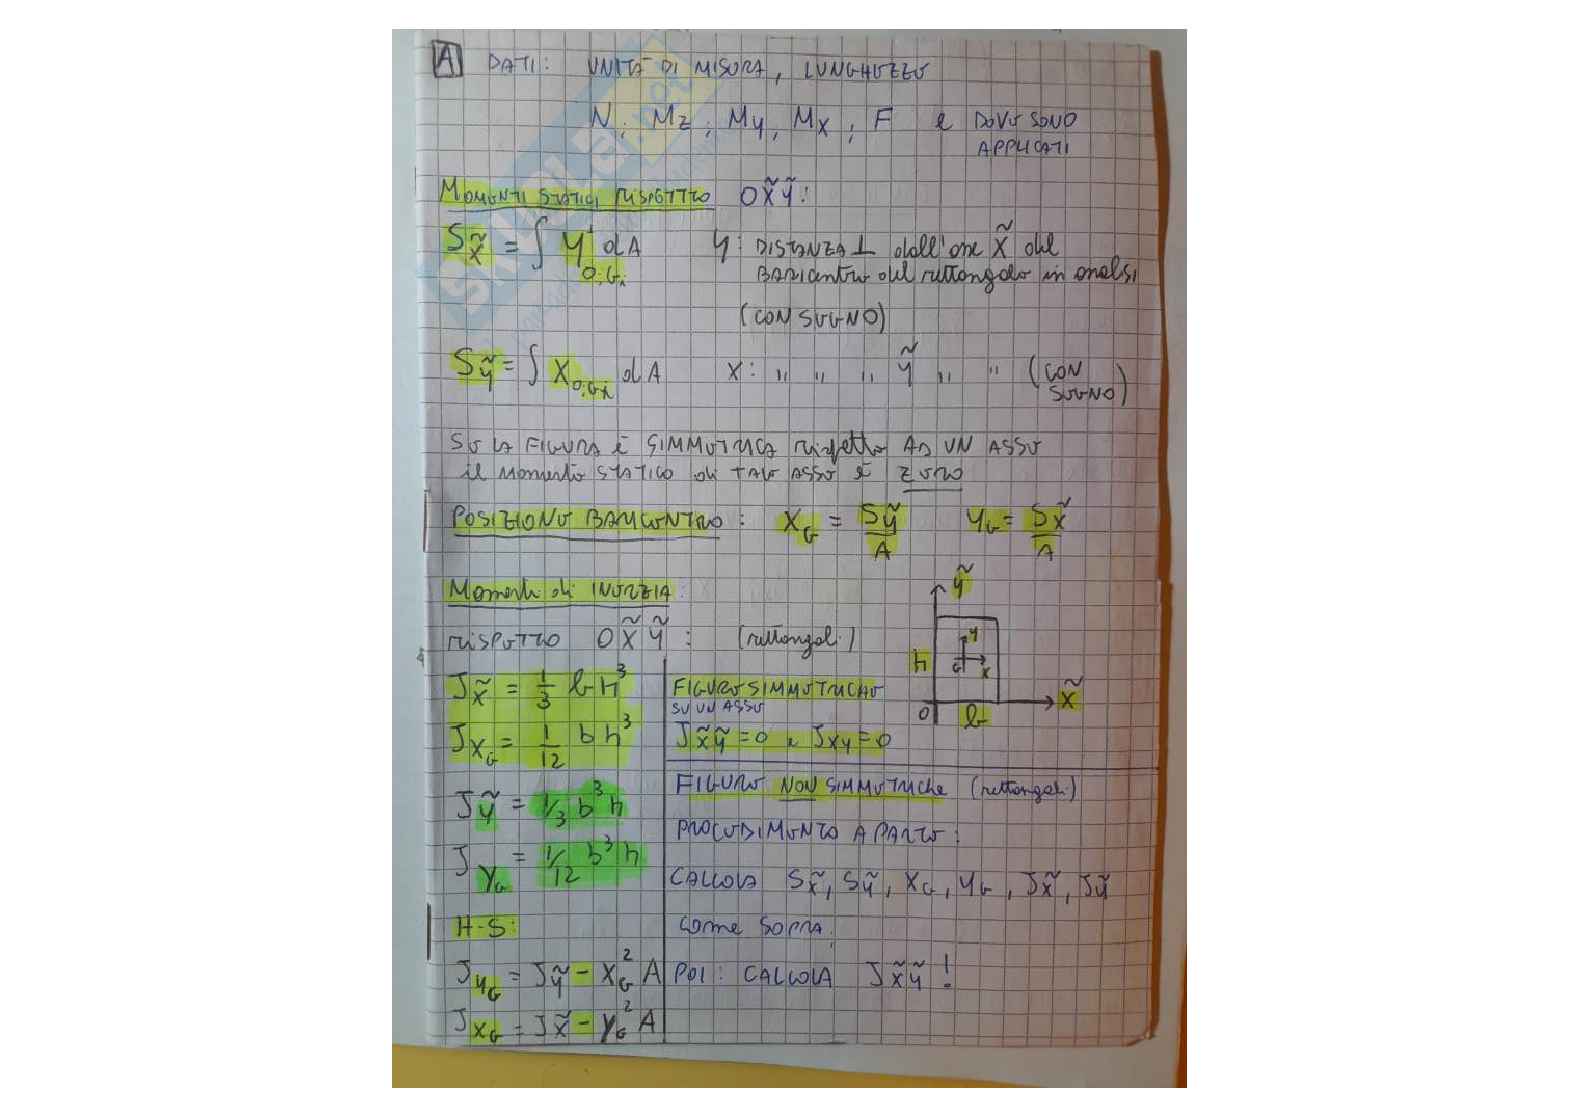 A DATI: UNITÀ DI MISURA, LUNGHEZZE
N, Mz, My, Mx, F e DOVE SONO
APPLICATI
MOMENTI STATICI RISPETTO OX̃Ỹ:
Sx̃ = ∫ y O,Gi dA y: DISTANZA ⊥ dall'asse X̃ del
BARICENTRO del rettangolo in analisi
(CON SEGNO)
Sỹ = ∫ X O,Gi dA X: " " " Ỹ " " (CON
SEGNO)
SE LA FIGURA È SIMMETRICA rispetto AD UN ASSE
il MOMENTO STATICO di TALE ASSE È ZERO
POSIZIONE BARICENTRO: XG = Sỹ/A YG = Sx̃/A
Momenti di INERZIA:
RISPETTO OX̃Ỹ: (rettangoli)
Jx̃ = 1/3 bh³
JxG = 1/12 bh³
Jỹ = 1/3 b³h
JyG = 1/12 b³h
H-S:
JyG = Jỹ - XG² A
JxG = Jx̃ - YG² A
ỹ
h
y
G
x
O
b
x̃
FIGURE SIMMETRICHE
SU UN ASSE
Jx̃ỹ = 0 e Jxy = 0
FIGURE NON SIMMETRICHE (rettangoli)
PROCEDIMENTO A PARTE:
CALCOLA Sx̃, Sỹ, XG, YG, Jx̃, Jỹ
come SOPRA.
POI: CALCOLA Jx̃ỹ!